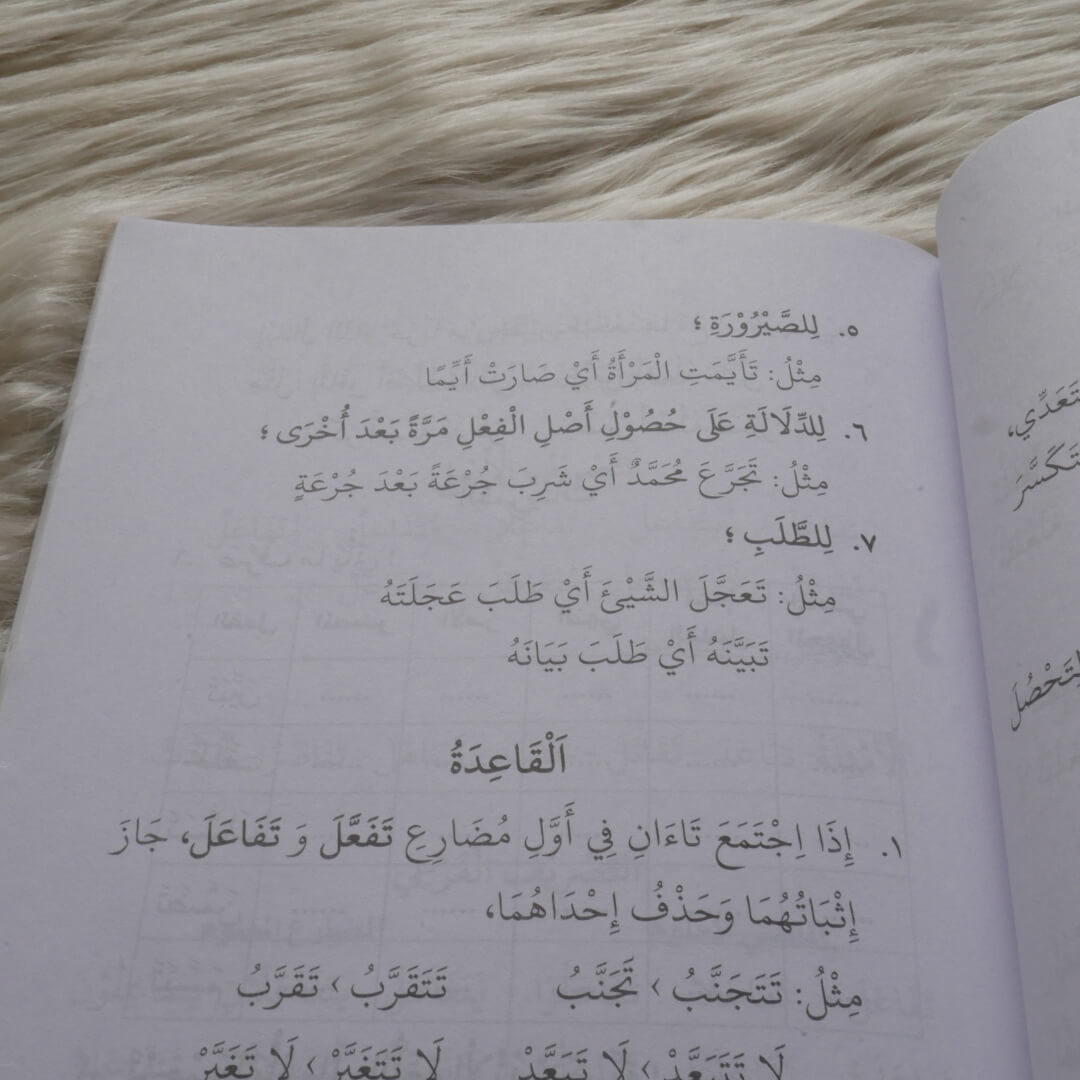 ٥. لِلصَّيْرُوْرَةِ ؛
مِثْلُ: تَأَيَّمَتِ الْمَرْأَةُ أَيْ صَارَتْ أَيِّمًا
٦. لِلدِّلَالَةِ عَلَى حُصُوْلِ أَصْلِ الْفِعْلِ مَرَّةً بَعْدَ أُخْرَى ؛
مِثْلُ: تَجَرَّعَ مُحَمَّدٌ أَيْ شَرِبَ جُرْعَةً بَعْدَ جُرْعَةٍ
٧. لِلطَّلَبِ ؛
مِثْلُ: تَعَجَّلَ الشَّيْئَ أَيْ طَلَبَ عَجَلَتَهُ
تَبَيَّنَهُ أَيْ طَلَبَ بَيَانَهُ
اَلْقَاعِدَةُ
١. إِذَا اِجْتَمَعَ تَاءَانِ فِي أَوَّلِ مُضَارِعِ تَفَعَّلَ وَ تَفَاعَلَ، جَازَ
إِثْبَاتُهُمَا وَحَذْفُ إِحْدَاهُمَا،
مِثْلُ: تَتَجَنَّبُ › تَجَنَّبُ تَتَقَرَّبُ › تَقَرَّبُ
لَا تَتَبَعَّدْ › لَا تَبَعَّدْ لَا تَتَغَيَّرْ › لَا تَغَيَّرْ
تَعَدِّي،
تَكَسَّرَ